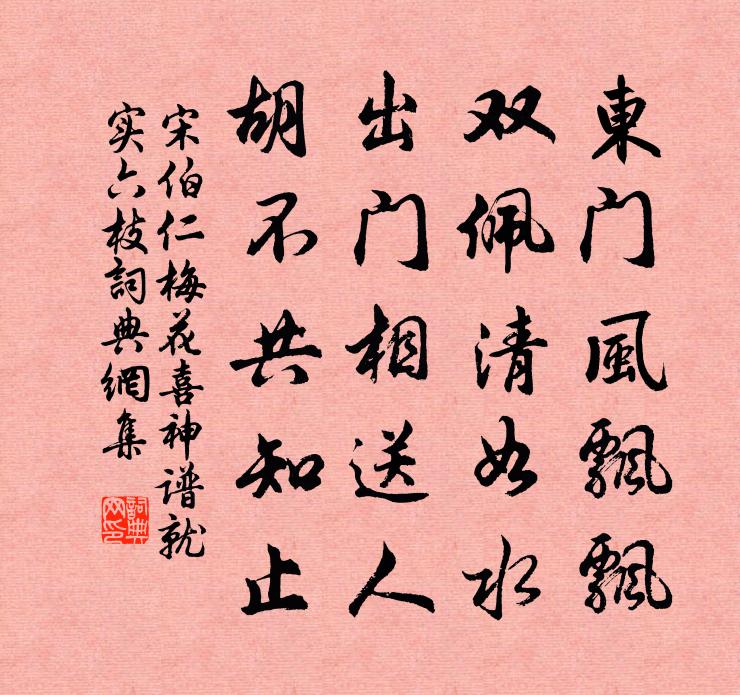 東门風飄飄
双佩清如水
出门相送人
胡不共知止
宋伯仁梅花喜神谱就
实六枝詞典網集
詞典网印